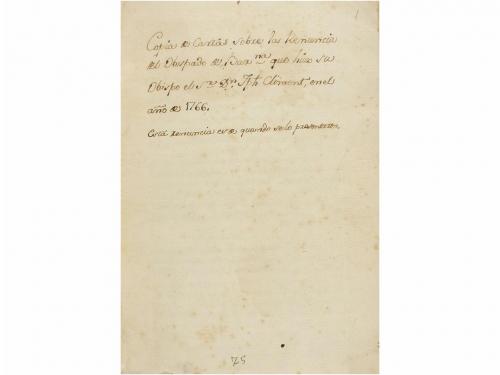 1
Copia de Cartas sobre las Renuncia
del Obispado de Barna que hizo su
Obispo el Sr Dn Jph. Climent, en el
año de 1766.
Esta renuncia es de quando se lo presentaron.
75